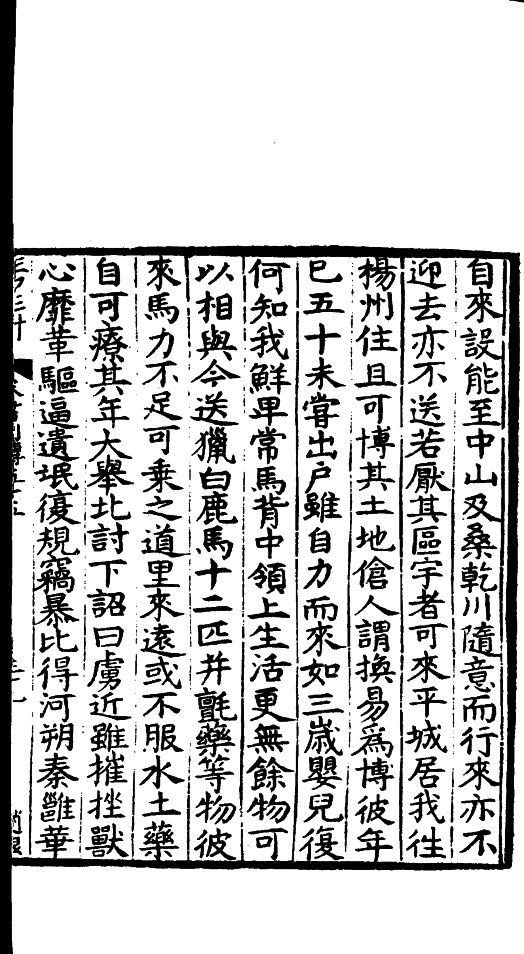 自來設能至中山及桑乾川隨意而行來亦不
迎去亦不送若厭其區宇者可來平城居我往
楊州住且可博其土地傖人謂換易爲博彼年
已五十未嘗出戶雖自力而來如三歲嬰兒復
何知我鮮卑常馬背中領上生活更無餘物可
以相與今送獵白鹿馬十二匹并氊藥等物彼
來馬力不足可乘之道里來遠或不服水土藥
自可療其年大舉北討下詔曰虜近雖摧挫獸
心靡革驅逼遺氓復規竊暴比得河朔秦雝華